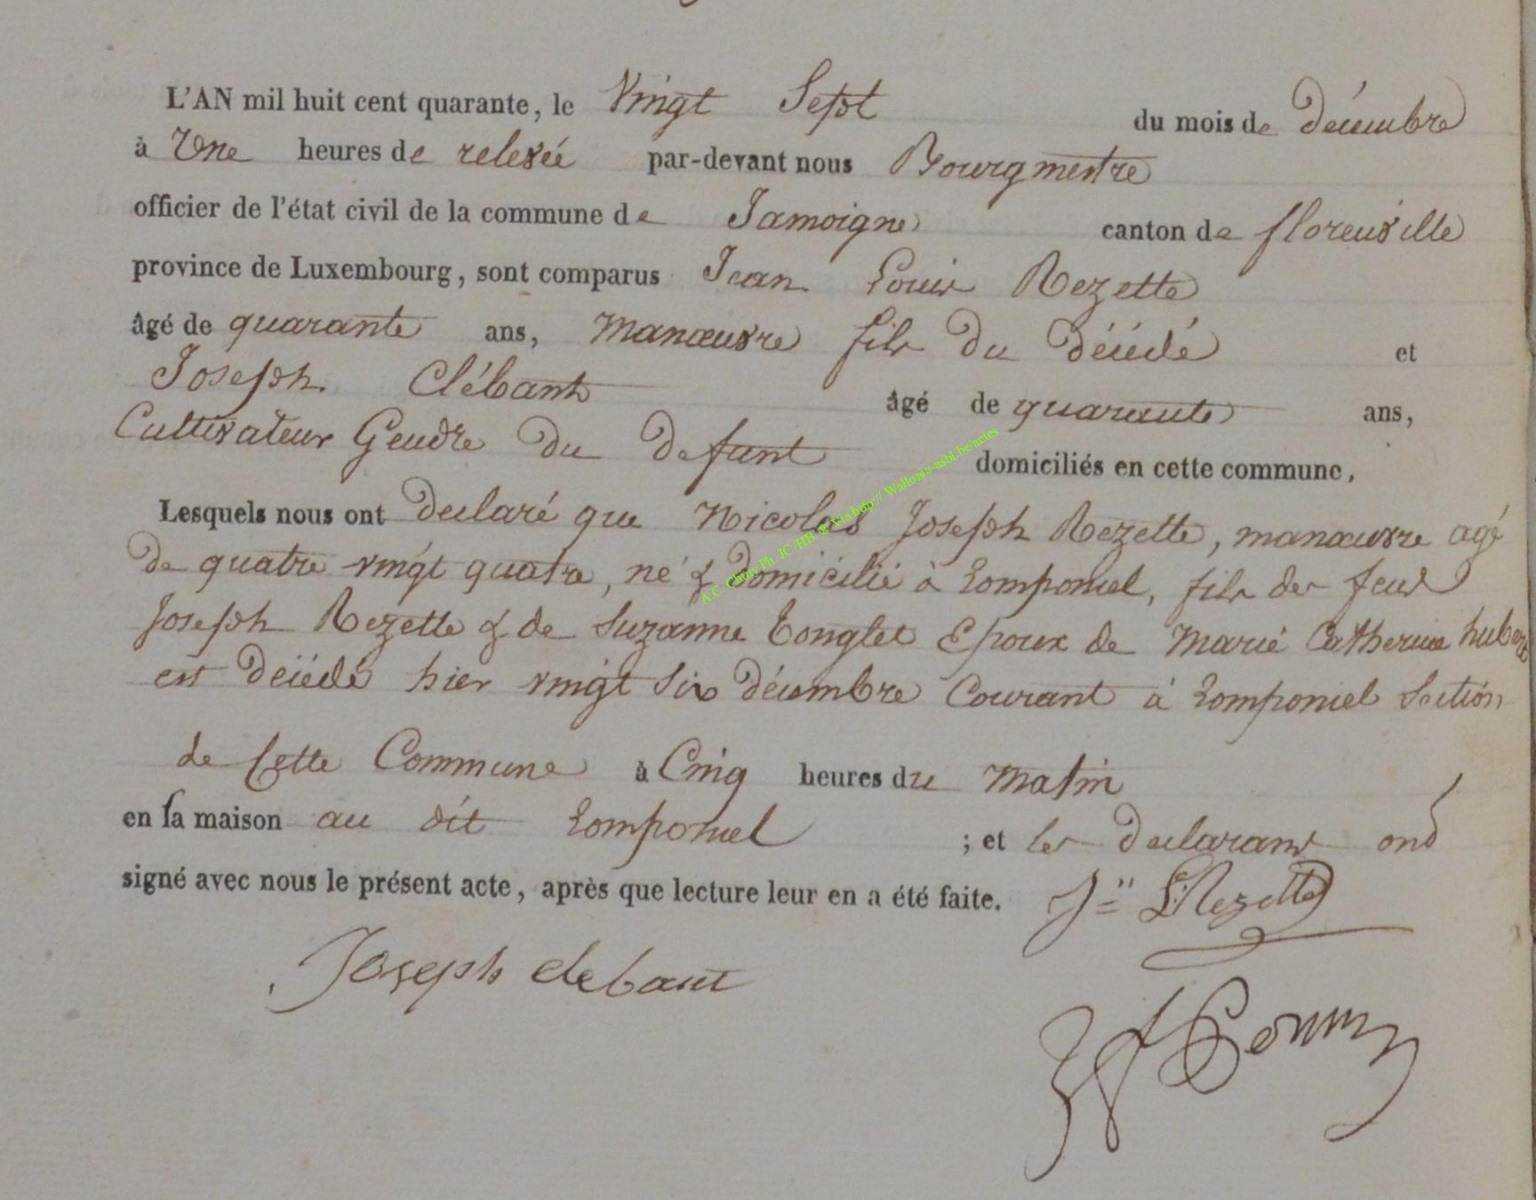 L'AN mil huit cent quarante, le Vingt Sept du mois de décembre
à Une heures de relevée par-devant nous Bourgmestre
officier de l'état civil de la commune de Jamoigne canton de florenville
province de Luxembourg, sont comparus Jean Louis Rezette
âgé de quarante ans, manœuvre fils du décédé et
Joseph Clébant âgé de quarante ans,
Cultivateur Gendre du defunt domiciliés en cette commune,
Lesquels nous ont declaré que Nicolas Joseph Rezette, manœuvre agé
de quatre vingt quatre, né & domicilié à Romponcel, fils des feus
Joseph Rezette & de Suzanne Tonglet Epoux de Marie Catherine hubert
est décédé hier vingt Six décembre Courant à Romponcel Section
de Cette Commune à Cinq heures du matin
en sa maison au dit Romponcel ; et les declarans ont
signé avec nous le présent acte, après que lecture leur en a été faite. Jn L Rezette
Joseph clebant